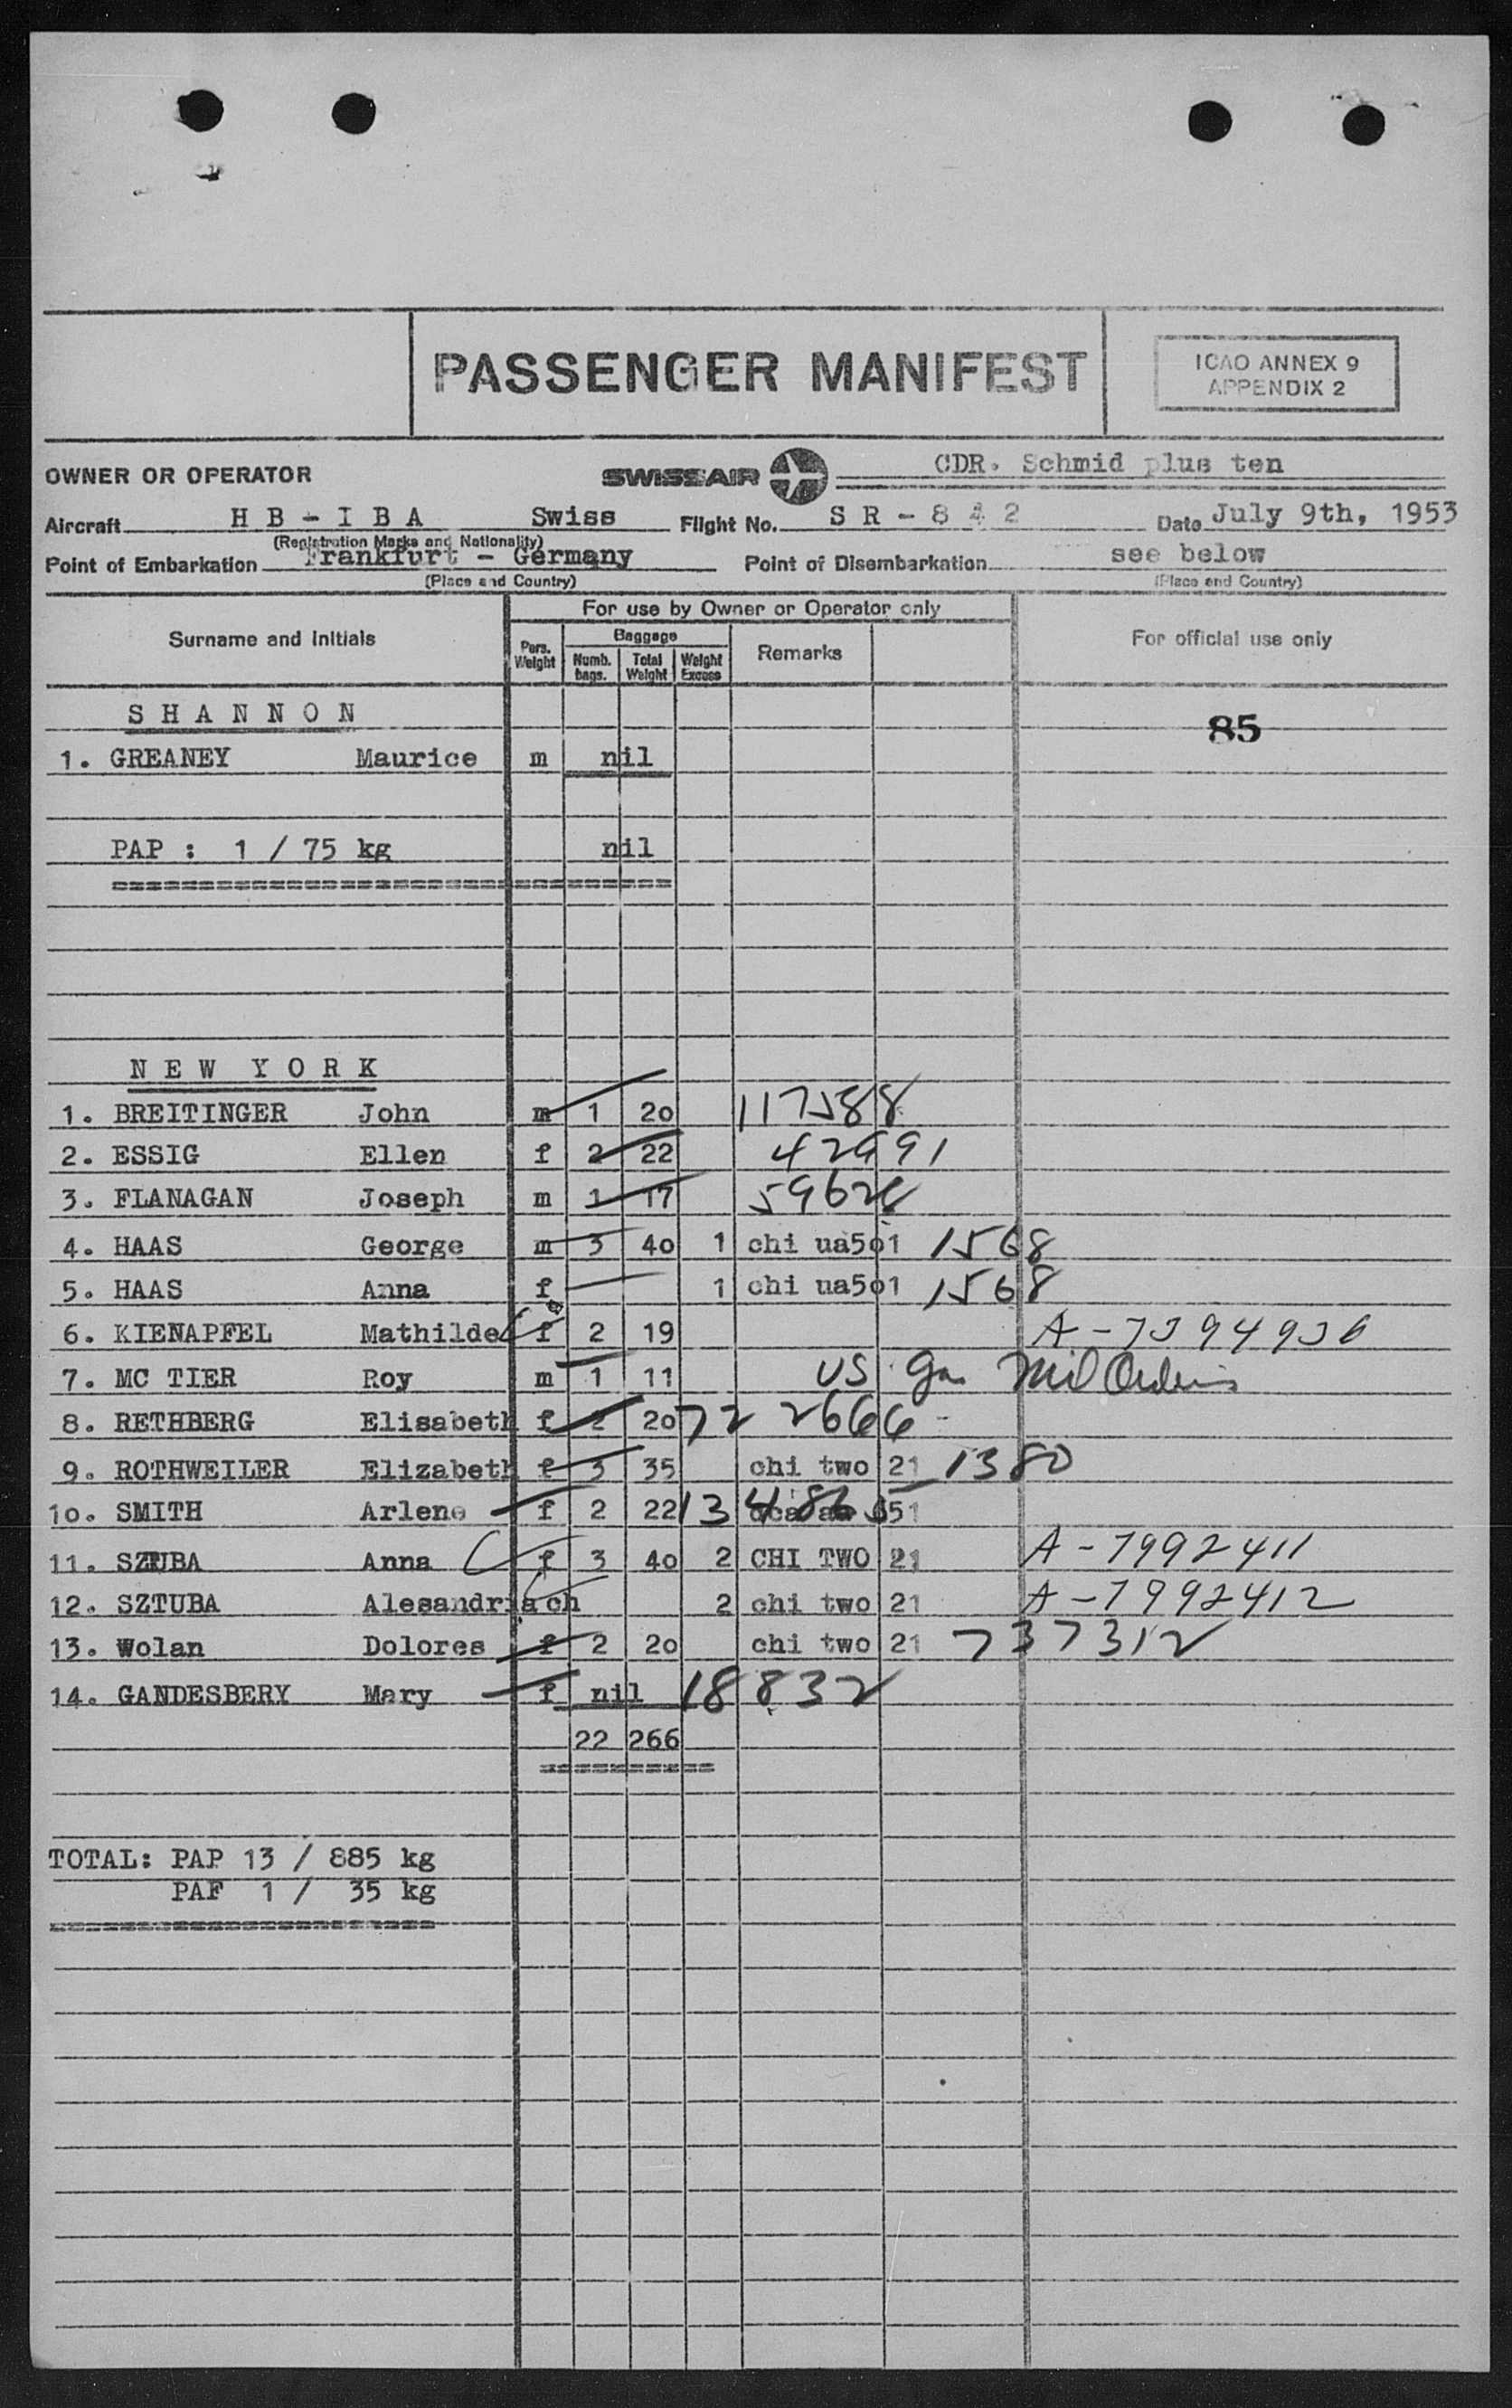 PASSENGER MANIFEST
ICAO ANNEX 9
APPENDIX 2
OWNER OR OPERATOR SWISSAIR CDR. Schmid plus ten
Aircraft H B - I B A Swiss Flight No. S R - 8 4 2 Date July 9th, 1953
(Registration Marks and Nationality)
Point of Embarkation Frankfurt - Germany Point of Disembarkation see below
(Place and Country) (Place and Country)
Surname and Initials For use by Owner or Operator only For official use only
Pers. Weight Baggage Remarks
Numb. bags. Total Weight Weight Excess
S H A N N O N 85
1. GREANEY Maurice m nil
PAP : 1 / 75 kg nil
==========================
N E W Y O R K
1. BREITINGER John m 1 20 117588
2. ESSIG Ellen f 2 22 42991
3. FLANAGAN Joseph m 1 17 59628
4. HAAS George m 3 40 1 chi ua501 1568
5. HAAS Anna f 1 chi ua501 1568
6. KIENAPFEL Mathilde f 2 19
7. MC TIER Roy m 1 11 US Mil Orders
8. RETHBERG Elisabeth f 2 20 722666
9. ROTHWEILER Elizabeth f 3 35 chi two 21 1380
10. SMITH Arlene f 2 22 651
11. SZTUBA Anna f 3 40 2 CHI TWO 21 A-7992411
12. SZTUBA Alesandria ch 2 chi two 21 A-7992412
13. Wolan Dolores f 2 20 chi two 21 737312
14. GANDESBERY Mary f nil 18832
22 266
==========
TOTAL: PAP 13 / 885 kg
PAF 1 / 35 kg
======================